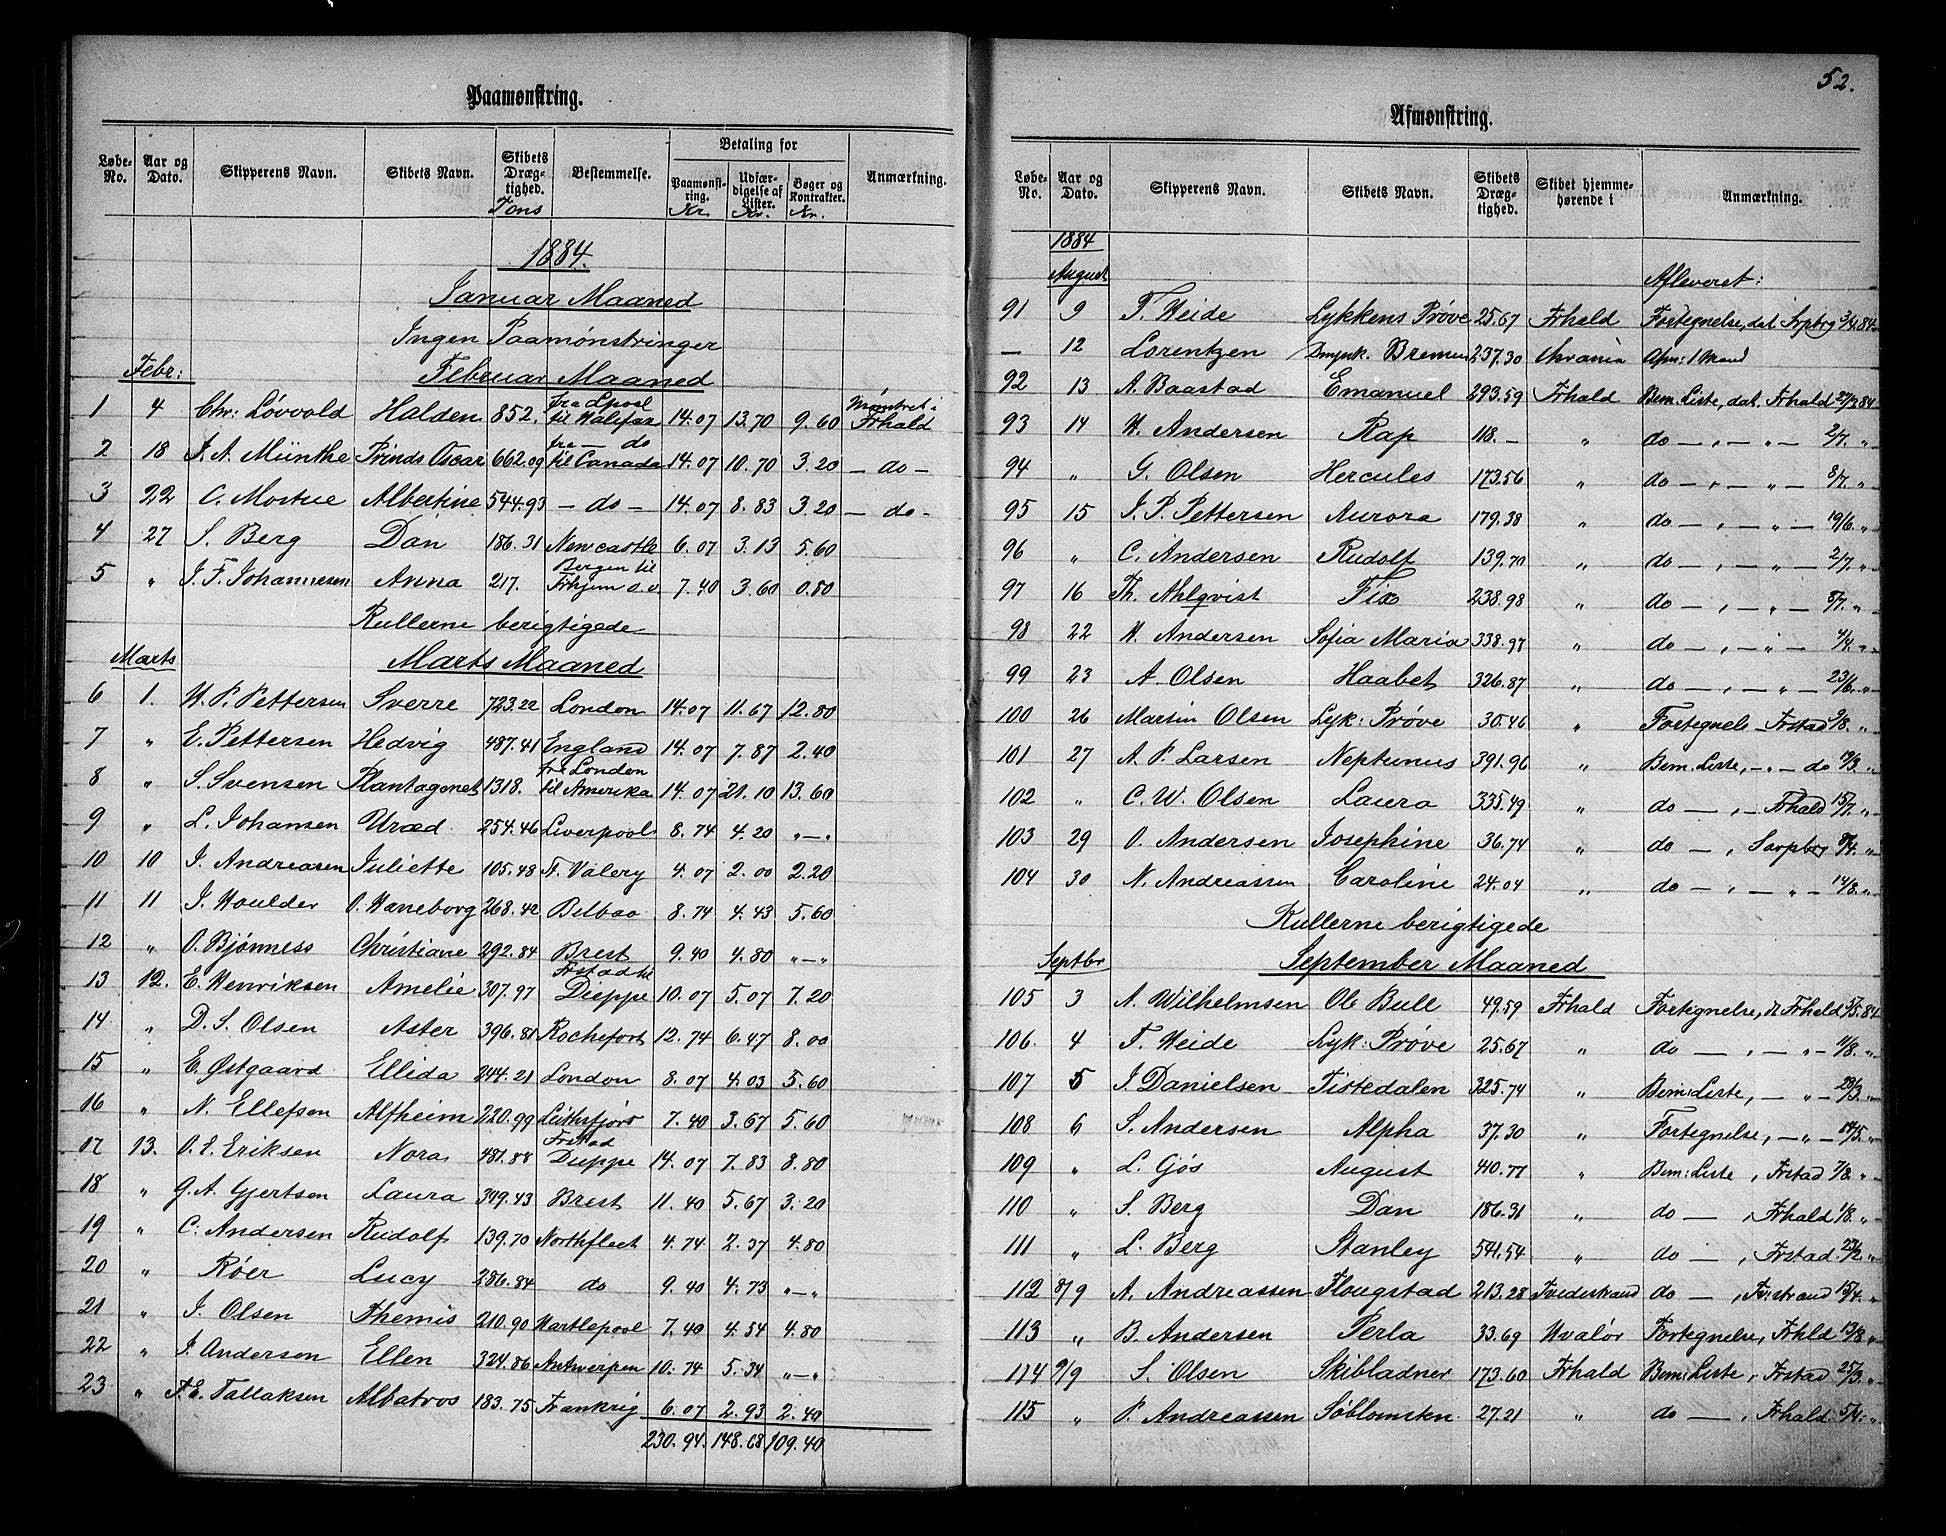 52.
Paamønstring.
Løbe-No. Aar og Dato. Skipperens Navn. Skibets Navn. Skibets Dræg-tighed. Bestemmelse. Betaling for Anmærkning.
Paamønst-ring. Udfær-digelse af Lister. Bøger og Kontrakter.
Tons Kr. Kr. Kr.
1884.
Januar Maaned
Ingen Paamønstringer
Febr: Februar Maaned
1 4 Chr: Løvvold Halden 852. fra Lpool til Halifax 14.07 13.70 9.60 Mønstret i Frhald
2 18 J. A. Münthe Prinds Oscar 662.09 fra — do til Canada 14.07 10.70 3.20 — do —
3 22 C. Mostue Albertine 544.93 — do — 14.07 8.83 3.20 — do —
4 27 S. Berg Dan 186.31 Newcastle 6.07 3.13 5.60
5 " J. F. Johannesen Anna 217. Bergen til Frhjem o.v 7.40 3.60 0.80
Rullerne berigtigede
Marts Marts Maaned
6 1. H. P. Pettersen Sverre 723.22 London 14.07 11.67 12.80
7 " E. Pettersen Hedvig 487.41 England 14.07 7.87 2.40
8 " S. Svensen Plantagenet 1318. fra London til Amerika 14.07 21.10 13.60
9 " L. Johansen Uræd 254.46 Liverpool 8.74 4.20 "—"
10 10 J. Andreasen Juliette 105.48 St. Valery 4.07 2.00 2.20
11 11 J. Houlder O. Haneborg 268.42 Bilbao 8.74 4.43 5.60
12 " O. Bjønness Christiane 292.84 Brest 9.40 4.80 "—"
13 12. E. Henriksen Amelie 307.97 Frstad til Dieppe 10.07 5.07 7.20
14 " D. S. Olsen Aster 396.81 Rochefort 12.74 6.47 8.00
15 " E. Østgaard Ellida 244.21 London 8.07 4.03 5.60
16 " N. Ellefsen Alfheim 220.99 Leithsfjord 7.40 3.67 5.60
17 13. O. E. Eriksen Nora 481.88 Frstad Dieppe 14.07 7.83 8.80
18 " G. A. Gjertsen Laura 349.43 Brest 11.40 5.67 3.20
19 " C. Andersen Rudolf 139.70 Northfleet 4.74 2.37 4.80
20 " Røer Lucy 286.84 do 9.40 4.73 "—"
21 " J. Olsen Themis 210.90 Hartlepool 7.40 4.54 4.80
22 " J. Andersen Ellen 324.86 Antwerpen 10.74 5.34 "—"
23 " F. E. Tallaksen Albatros 183.75 Frankrig 6.07 2.93 2.40
230.94. 148.68 109.40
Afmønstring.
Løbe-No. Aar og Dato. Skipperens Navn. Skibets Navn. Skibets Dræg-tighed. Skibet hjemme-hørende i Anmærkning.
1884
August Afleveret:
91 9 T. Heide Lykkens Prøve 25.67 Frhald Fortegnelse, dat. Srpbrg 3/4 84
— 12 Lorentzen Dmpsk. Bremen 237.30 Chrania Afm: 1 Mand
92 13 A. Baastad Emanuel 293.59 Frhald Bem. Liste, dat. Frhald 27/3 84
93 14 H. Andersen Rap 118.— " do — , — " — 2/7. "
94 " G. Olsen Hercules 173.56 " do — , — " — 8/7. "
95 15 J. P. Pettersen Aurora 179.38 " do — , — " — 19/6. "
96 " C. Andersen Rudolf 139.70 " do — , — " — 2/7. "
97 16 Th. Ahlqvist Fix 238.98 " do — , — " — 8/7. "
98 22 H. Andersen Sofia Maria 338.97 " do — , — " — 4/4. "
99 23 A. Olsen Haabet 326.87 " do — , — " — 23/6. "
100 26 Martin Olsen Lyk: Prøve 30.46 " Fortegnels — Frstad 9/8. "
101 27 A. P. Larsen Neptunus 391.96 " Bem. Liste, — " — do 19/3. "
102 " C. W. Olsen Laura 335.49 " do — , Frhald 15/7. "
103 29 O. Andersen Josephine 36.74 " do — , Sarpbrg 8/4. "
104 30 N. Andreassen Caroline 24.04 " do — , — " — 14/8. "
Rullerne berigtigede
Septbr September Maaned
105 3 A. Wilhelmsen Ole Bull 49.59 Frhald Fortegnelse, dt Frhald 3/5. 84
106. 4 T. Heide Lyk: Prøve 25.67 " do — , — " — 11/8. "
107 5 J. Danielsen Tistedalen 325.74 " Bem: Liste, — " — 29/3. "
108 6 S. Andersen Alpha 37.30 " Fortegnelse, — " — 14/5. "
109 " L. Gjøs August 40.77 " Bem: Liste , Frstad 7/8. "
110 " S. Berg Dan 186.31 " do — , Frhald 1/8. "
111 " L. Berg Stanley 541.54 " do — , Frstad. 23/2. "
112 8/9 A. Andreassen Flougstad 213.28 Tvedestrand do — , Forstrand 15/4. "
113 " B. Andersen Perla 33.69 Hvalør Fortegnelse, Frhld 13/8 "
114 9/9 S. Olsen Skibladner 173.60 Frhald Bem: Liste, Frstad 25/3. "
115 " P. Andreassen Søblomsten 27.21 " do — , Frhald. 5/4. "